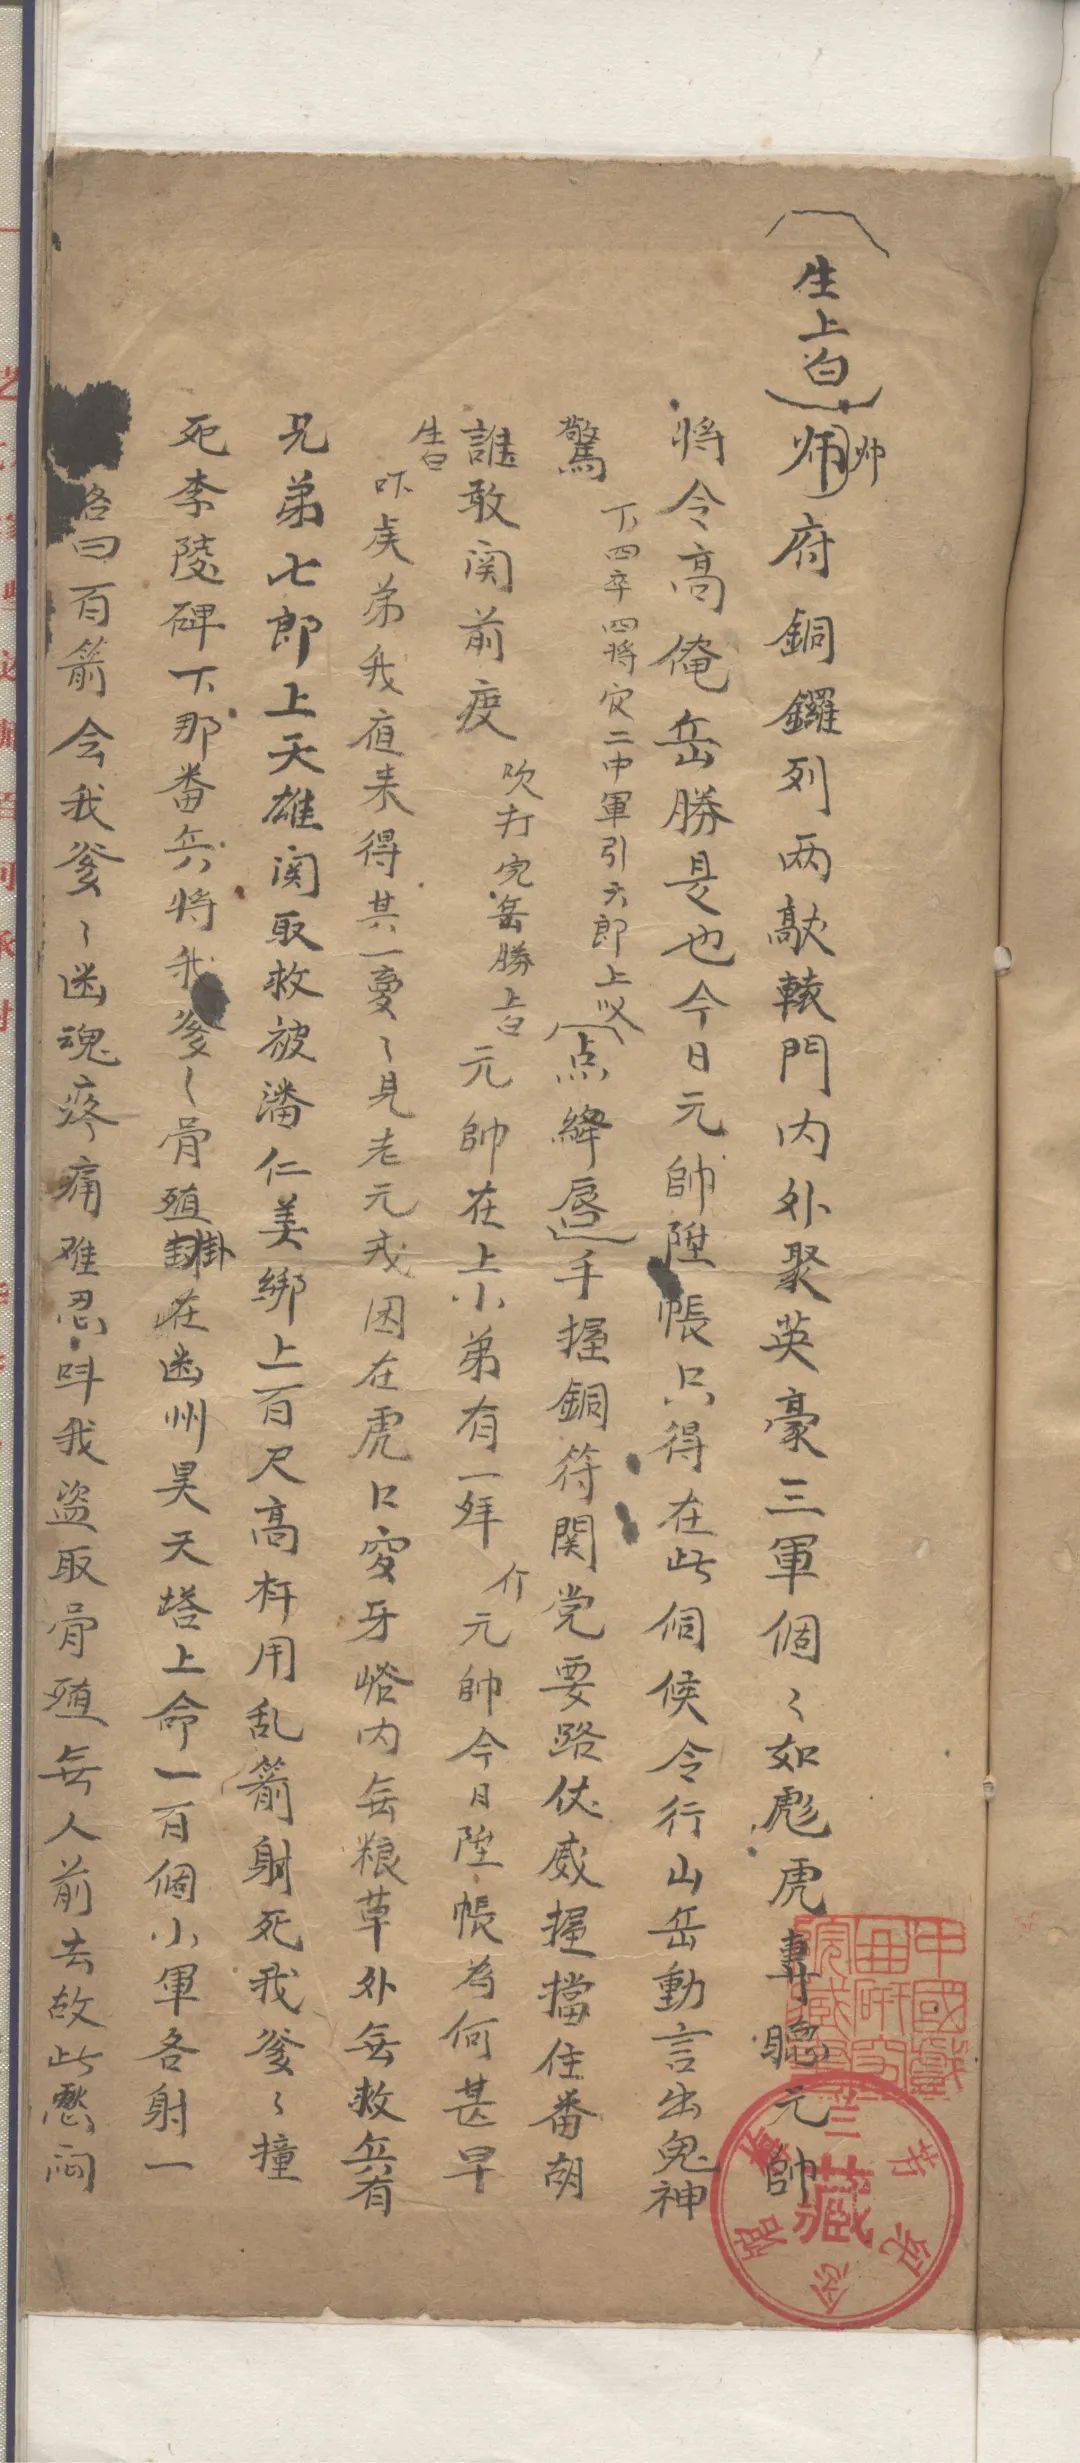 生上白 师帅府銅鑼列两敲轅門内外聚英豪三軍個〻如彪虎專聽元帥
将令高俺岳勝是也今日元帥陞帳只得在此伺候令行山岳動言出鬼神
驚 下四卒四将 二中軍引六郎上 点絳唇 手握銅符関党要路仗威握擋住番胡
誰敢関前度 吹打完岳勝上白 元帥在上小弟有一拜 介 元帥今日陞帳為何甚早
生白 吓 弟我夜来得其一夢〻見老元戎困在虎口 牙峪内無粮草外無救兵有
兄弟七郎上天雄関取救被潘仁美綁上百尺高杆用乱箭射死我爹〻撞
死李陵碑下那番兵将我爹〻骨殖封掛在幽州昊天塔上命一百個小軍各射一
名曰百箭会我爹〻幽魂疼痛难忍叫我盗取骨殖無人前去故此愁悶
中國戲曲研究院藏書
藏